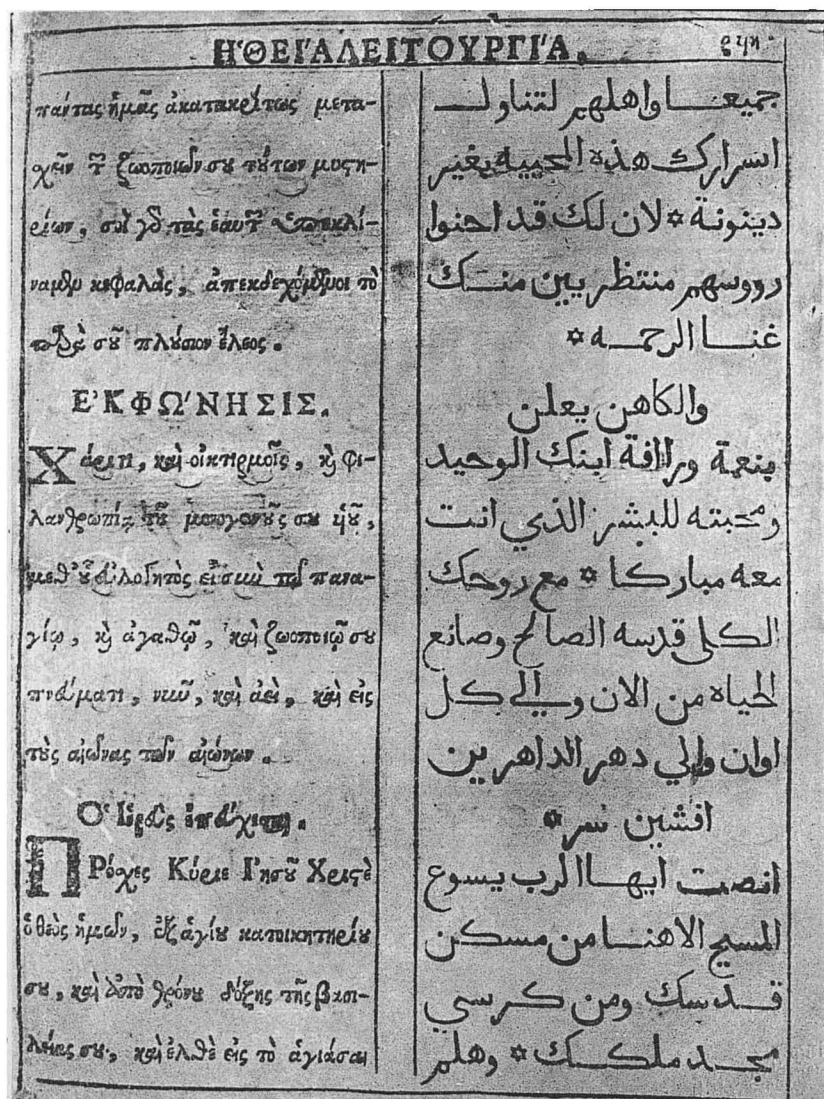 Η῾ ΘΕΙ΄Α ΛΕΙΤΟΥΡΓΙ΄Α.
πάντας ἡμᾶς ἀκατακρίτως μετα-
χεῖν τ ζωοποιῶν σου τούτων μυστη-
ρίων, σοὶ γὸ τὰς ἑαυτ ὑποκλί-
ναμθμ κεφαλὰς, ἀπεκδεχόμθμοι τὸ
παρὰ σοῦ πλούσιον ἔλεος.
Ε᾿ΚΦΩ΄ΝΗΣΙΣ.
Χάριτι, καὶ οἰκτιρμοῖς, κὴ φι-
λανθρωπίᾳ τοῦ μονογενοῦς σου ὑοῦ,
μεθ᾽ οὗ εὐλογητὸς εἶ σιωὺ τῷ πανα-
γίῳ, κὴ ἀγαθῷ, καὶ ζωοποιῷ σου
πνεύματι, νιωῦ, καὶ ἀεὶ, καὶ εἰς
τοὺς αἰῶνας τῶν αἰώνων.
Ο῾ Ἱερεὺς ἐπεύχεται.
ΠΡόχες Κύριε Ι᾿ησοῦ Χριστὲ
ὁ θεὸς ἡμῶν, ἐξ ἁγίου κατοικητηρίου
σου, καὶ ἀπὸ θρόνου δόξης τῆς βασι-
λείας σου, καὶ ἐλθὲ εἰς τὸ ἁγιάσαι
جميعنا واهلهم لتناول
اسرارك هذه المحييه بغير
دينونة * لان لك قد احنوا
رووسهم منتظريين منك
غنا الرحمه *
والكاهن يعلن
بنعمة ورافة ابنك الوحيد
ومحبته للبشر الذي انت
معه مباركا * مع روحك
الكلي قدسه الصالح وصانع
الحياه من الان والي كل
اوان والي دهر الداهرين
افشين سر *
انصت ايها الرب يسوع
المسيح الاهنا من مسكن
قدسك ومن كرسي
مجد ملكك * وهلم